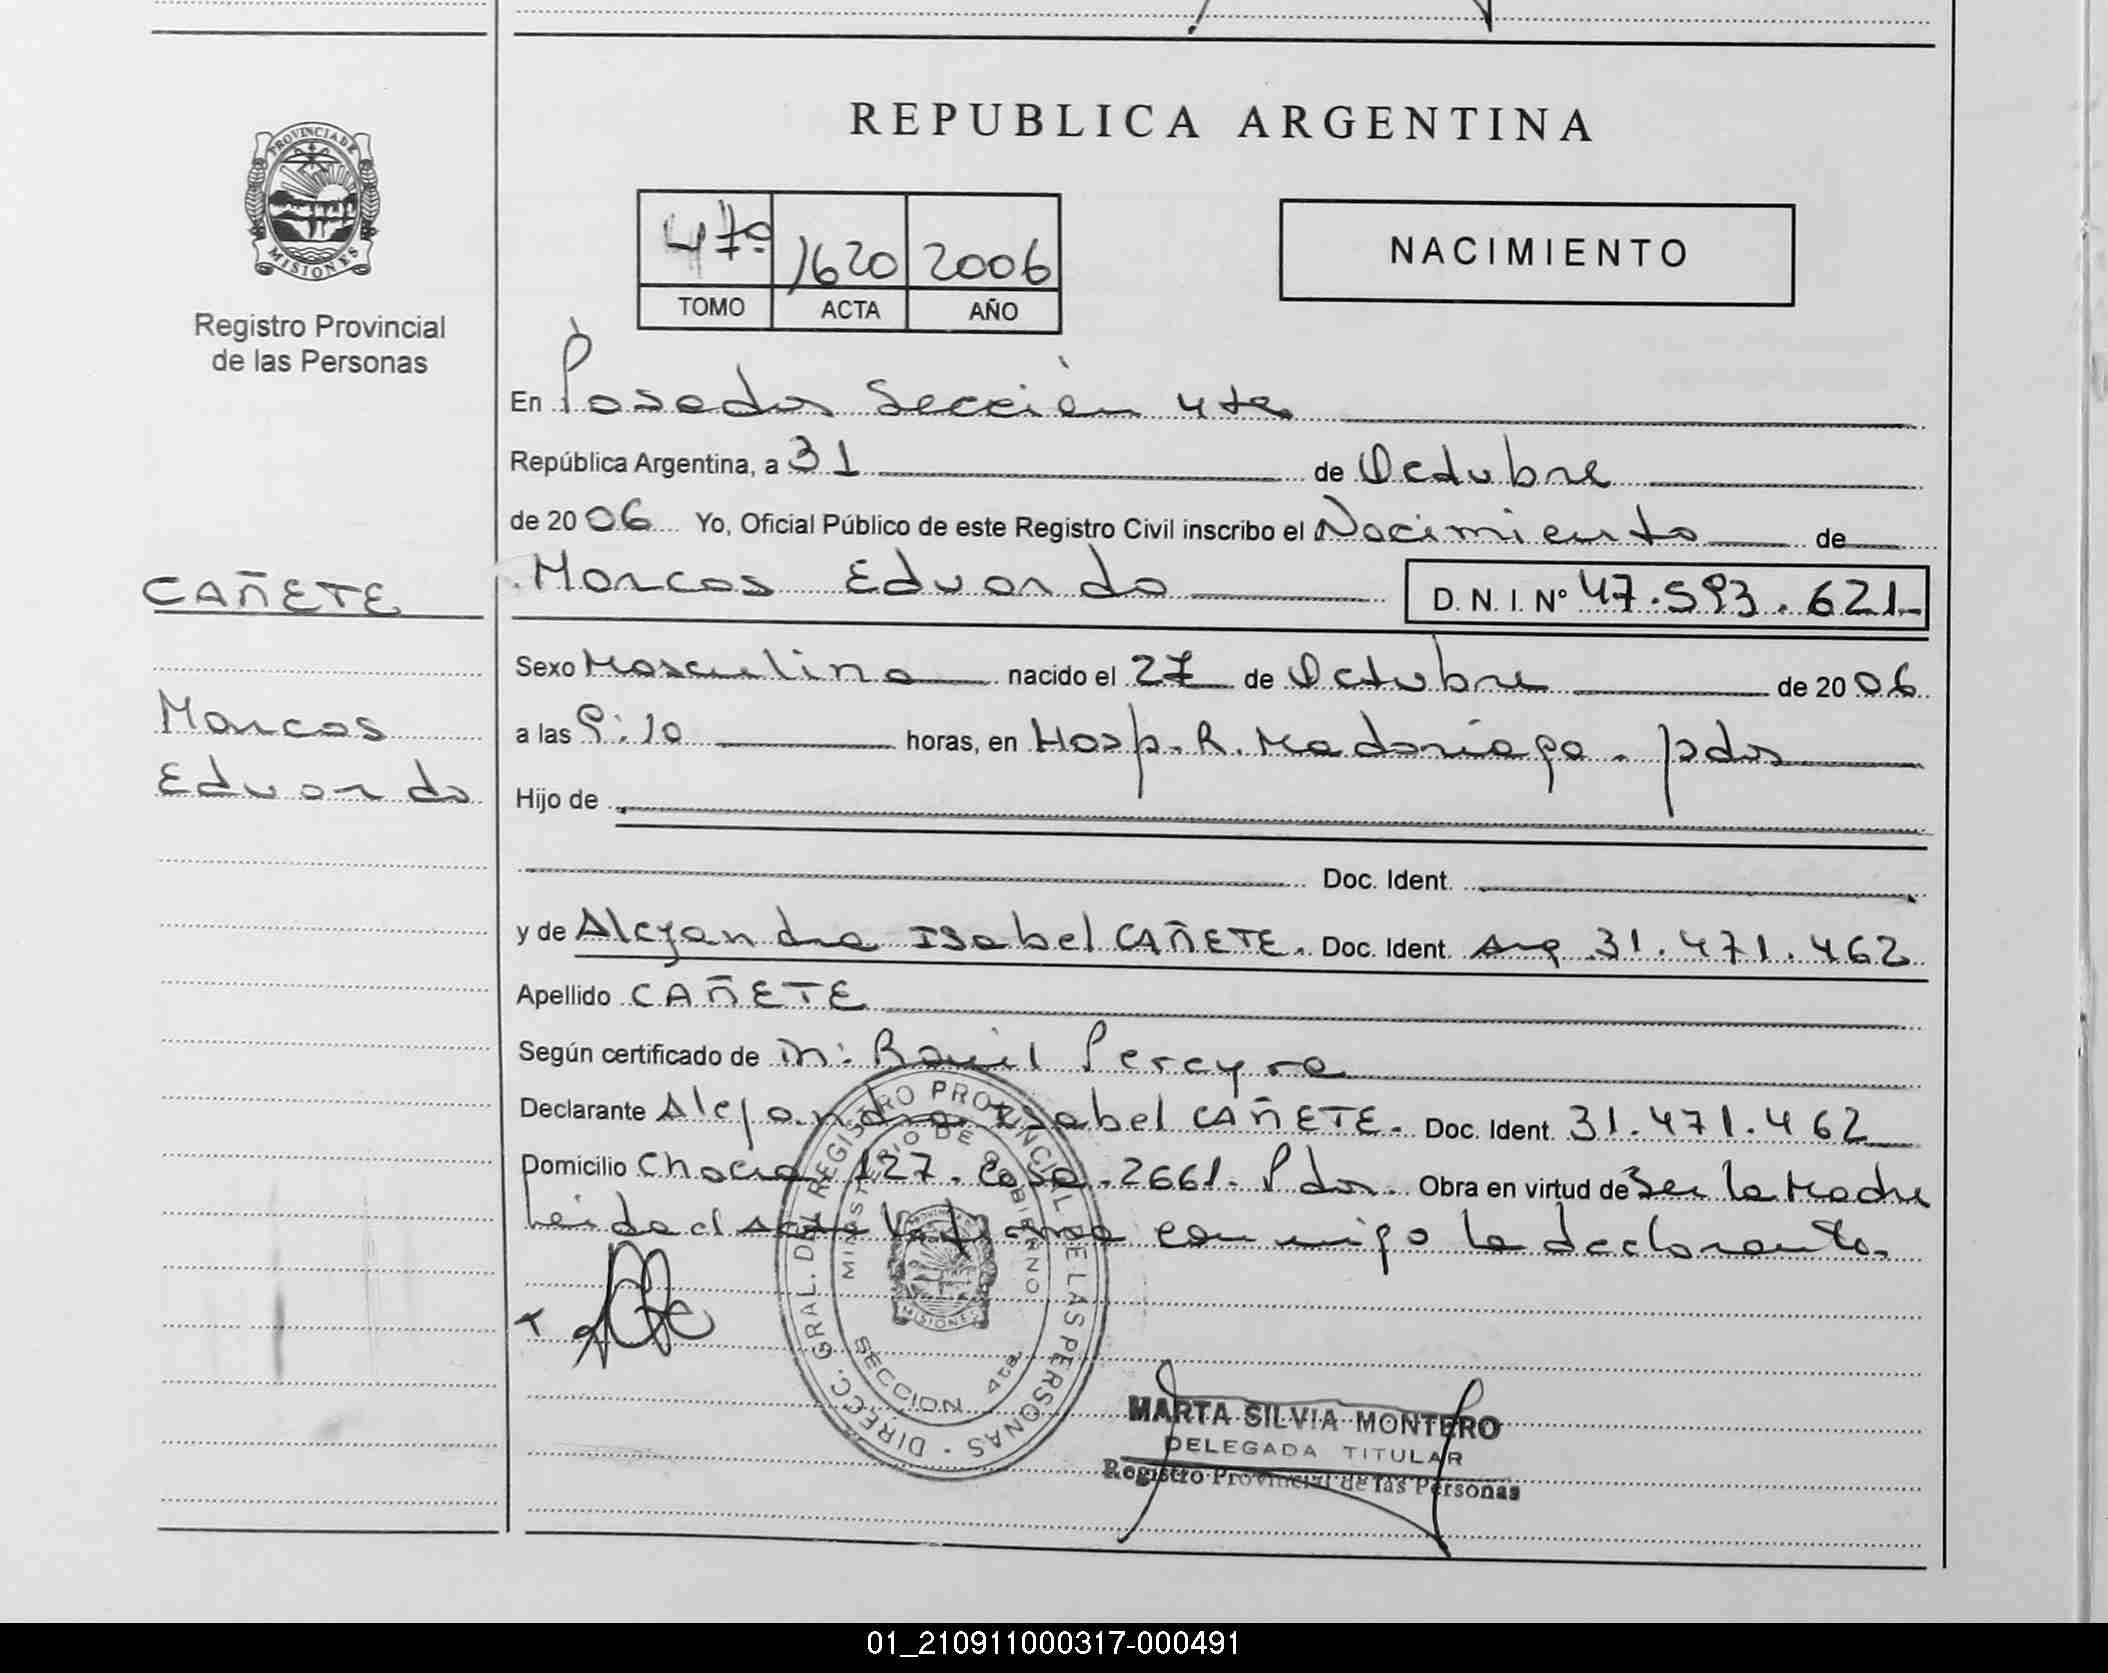 REPUBLICA ARGENTINA
PROVINCIA DE MISIONES
Registro Provincial
de las Personas
4to 1620 2006
TOMO ACTA AÑO
NACIMIENTO
En Posadas Sección 4ta
República Argentina, a 31 de Octubre
de 2006 Yo, Oficial Público de este Registro Civil inscribo el Nacimiento de
CAÑETE
Marcos Eduardo D. N. I. Nº 47.593.621
Sexo Masculino nacido el 27 de Octubre de 2006
Marcos
Eduardo
a las 9:10 horas, en Hosp. R. Madariaga. Pdas
Hijo de
Doc. Ident.
y de Alejandra Isabel CAÑETE. Doc. Ident. Arg 31.471.462
Apellido CAÑETE
Según certificado de Raúl Pereyra
Declarante Alejandra Isabel CAÑETE. Doc. Ident. 31.471.462
Domicilio Chacra 127. Casa. 2661. Pdas. Obra en virtud de Ser la Madre
Leída el acta la firma conmigo la declarante.
DIRECC. GRAL. DEL REGISTRO PROVINCIAL DE LAS PERSONAS
MINISTERIO DE GOBIERNO
MISIONES
SECCION 4ta
MARTA SILVIA MONTERO
DELEGADA TITULAR
Registro Provincial de las Personas
01_210911000317-000491